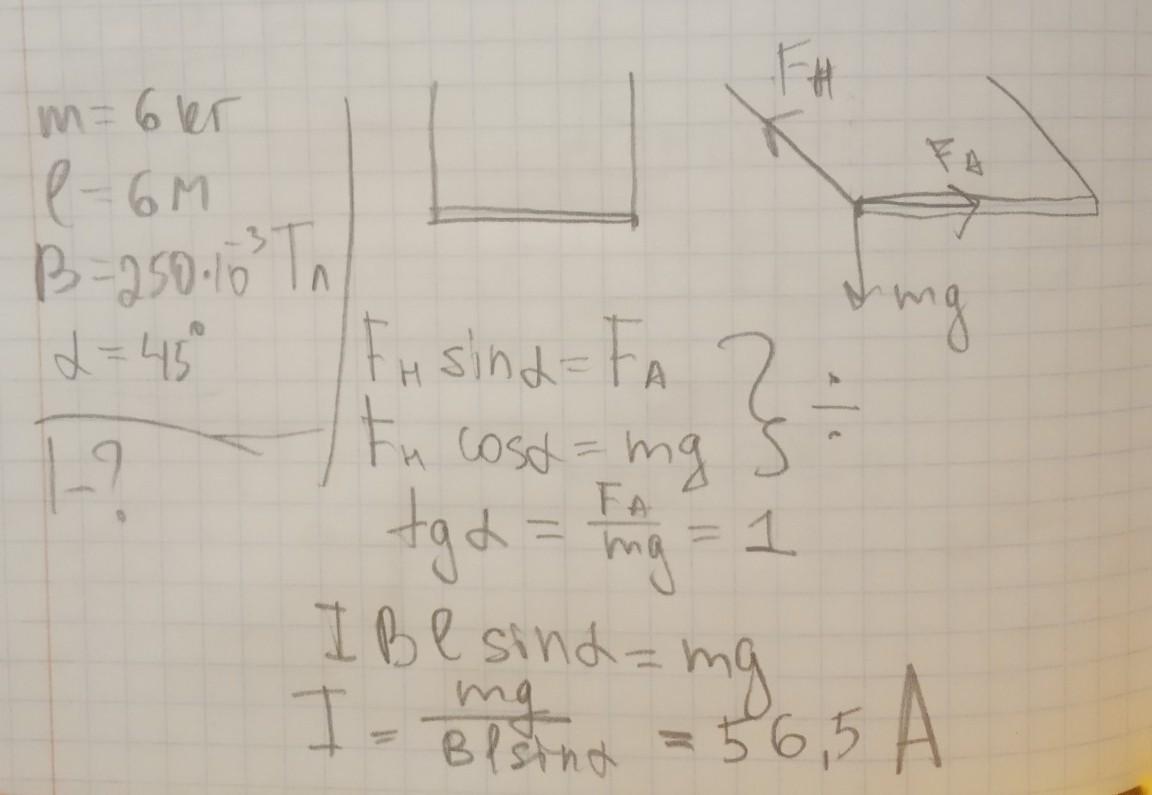 m = 6 кг
l = 6 м
B = 250·10⁻³ Тл
α = 45°
I - ?
Fн
FА
mg
Fн sinα = FА
Fн cosα = mg } ÷
tg α = FА/mg = 1
I B l sinα = mg
I = mg/Blsinα = 56,5 A